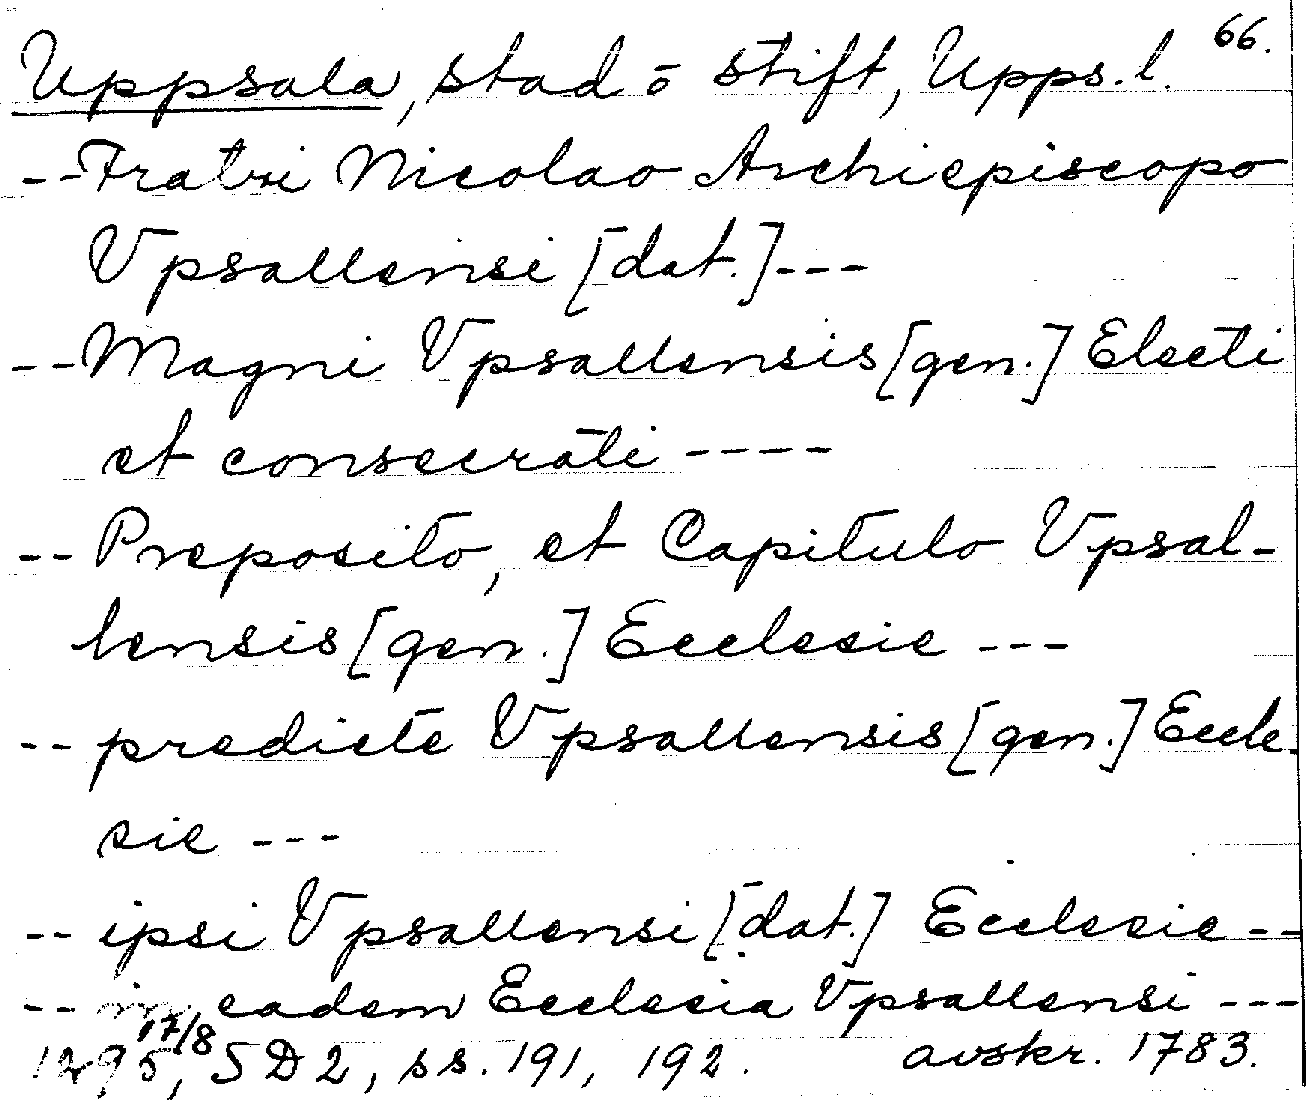 66.
Uppsala, stad o stift, Upps.l.
--Fratri Nicolao Archiepiscopo
Vpsallensi [dat.]---
--Magni Vpsallensis [gen.] Electi
et consecrati ----
--Preposito, et Capitulo Vpsal-
lensis [gen.] Ecclesie ---
--predicte Vpsallensis [gen.] Eccle-
sie ---
-- ipsi Vpsallensi [dat.] Ecclesie --
-- in eadem Ecclesia Vpsallensi ---
1295 17/8, SD2, ss. 191, 192. avskr. 1783.